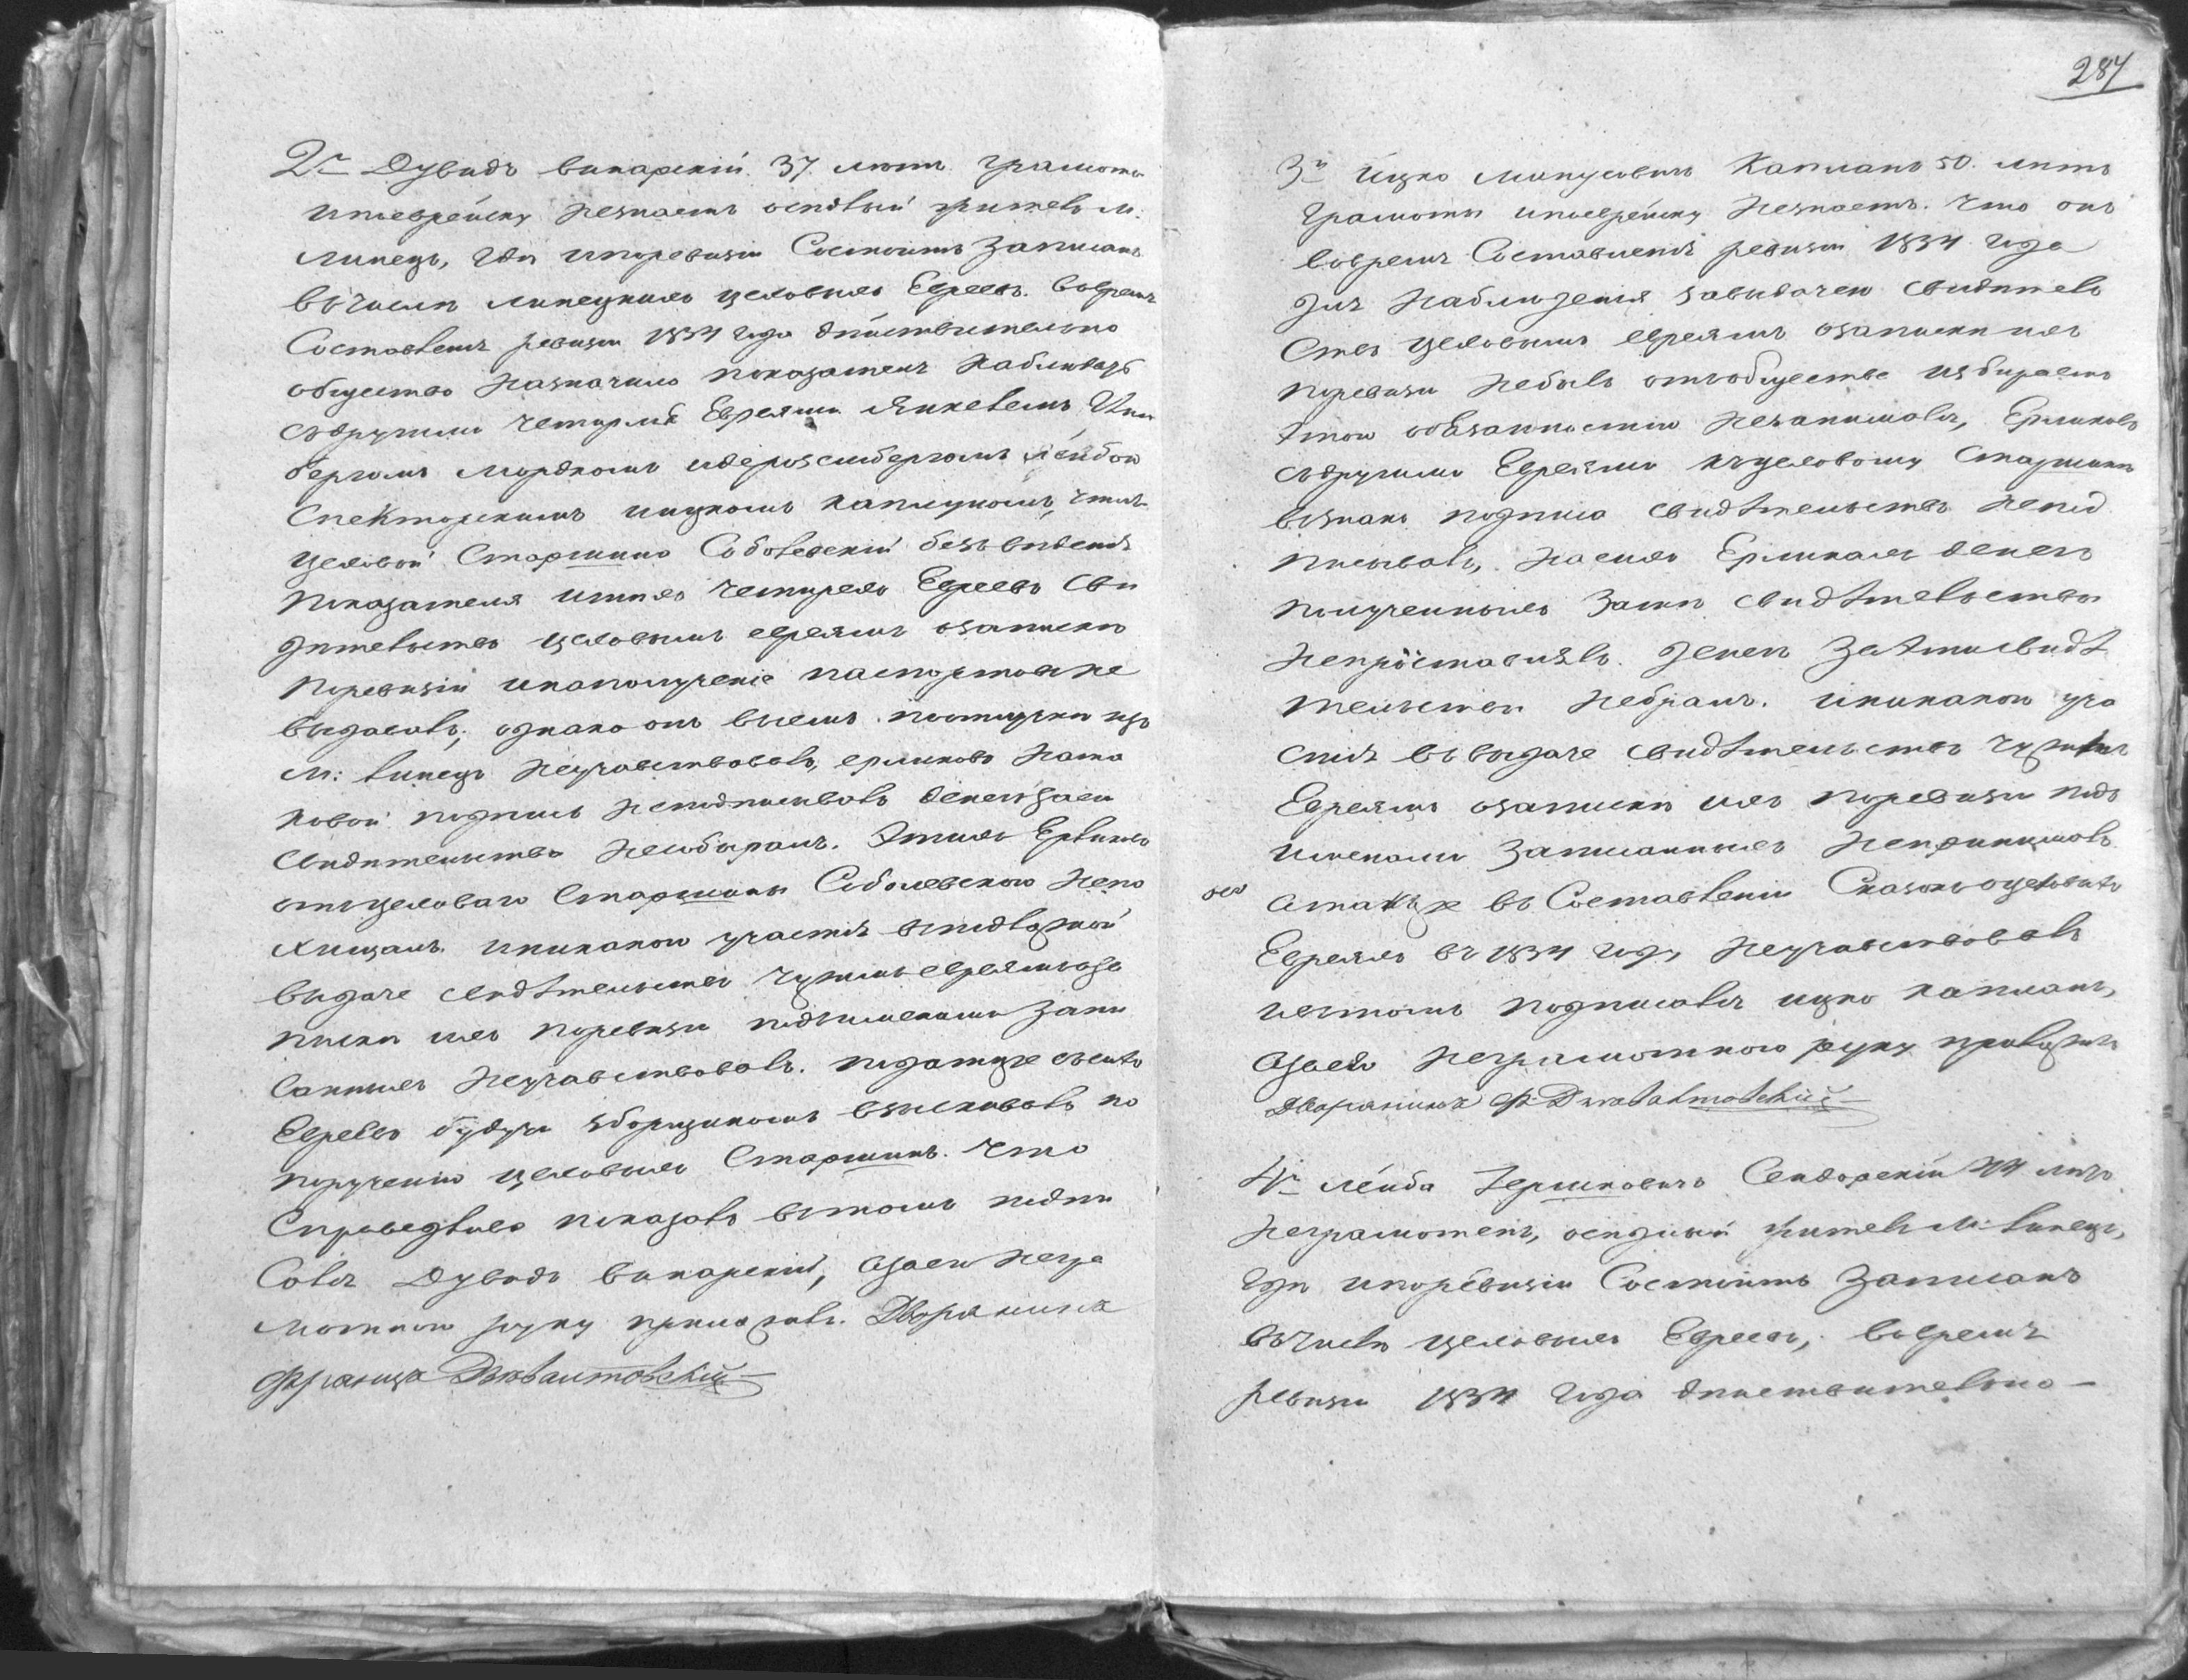 2й Дувидъ винарскій 37 летъ грамоты
ипоеврейску незнаетъ оседлый житель м:
Липецъ, где ипоревизіи Состоитъ Записанъ
вчисле липецкихъ цеховыхъ Евреевъ. вовремя
Составленія ревизіи 1834 года действительно
общество назначило показателя наблюдать
сдругими четырмя Евреями Янкелемъ
бергомъ Мордкомъ Лейбою
Спекторскимъ ицкомъ каплуномъ, чтобъ
цеховой Старшина Соболевскій безъ виденія
Показателя иэтихъ четырехъ Евреевъ сви
детельствъ цеховымъ евреямъ озаписки
Поревизіи инаполученіе паспортовъ не
выдавалъ; однако онъ всемъ поступки изъ
м: Липецъ неучавствовалъ, ерлыковъ
ковой подпись неподписывалъ денегъ заси
Свидетельства несобиралъ. Этихъ Ерлыковъ
отъцеховаго Старшины Соболевского непо
хищалъ. иникакого участія вподложной
выдаче свидетельствъ чужимъ евреямъ оза
писки ихъ Поревизіи подъименами Запи
санныхъ неучавствовалъ. податиже съсихъ
Евреевъ будучи зборщикомъ взыскивалъ по
порученію цеховыхъ Старшинъ. Что
Справедливо показалъ втомъ подпи
сался Дувидъ винарскій, азаего негра
мотного руку приложилъ. Дворянинъ
Францъ
284
3й Ицко Капланъ 50. летъ
Грамоты ипоеврейску незнаетъ. Что онъ
вовремя Составленія ревизіи 1834 года
для наблюденія завыдачею свидетель
ствъ цеховымъ евреямъ озаписки ихъ
поревизіи небылъ отъобщества избираемъ
Этою обязанностію незанимался, Ерлыковъ
сдругими Евреями къцеховому Старшине
взнакъ подписа свидетельствъ непод
писывалъ, насихъ Ерлыкахъ денегъ
полученныхъ Зати свидетельства
непроставлялъ. денегъ Заэтисвиде
тельства небралъ. иникакого уча
стія ввыдаче свидетельствъ чужимъ
Евреямъ озаписки ихъ поревизіи подъ
именами Записанныхъ непринималъ
атакъже въ Составленіи Сказокъ оцеховыхъ
Евреяхъ въ 1834 году неучавствовалъ
ивтомъ подписался ицко капланъ,
азаего неграмотного руку приложилъ
Дворянинъ Ф:
4й Лейба Гершковичъ 44 летъ
неграмотенъ, оседлый житель м: Липецъ,
где ипоревизіи Состоитъ Записанъ
вчисле цеховыхъ Евреевъ, вовремя
ревизіи 1834 года действительно—